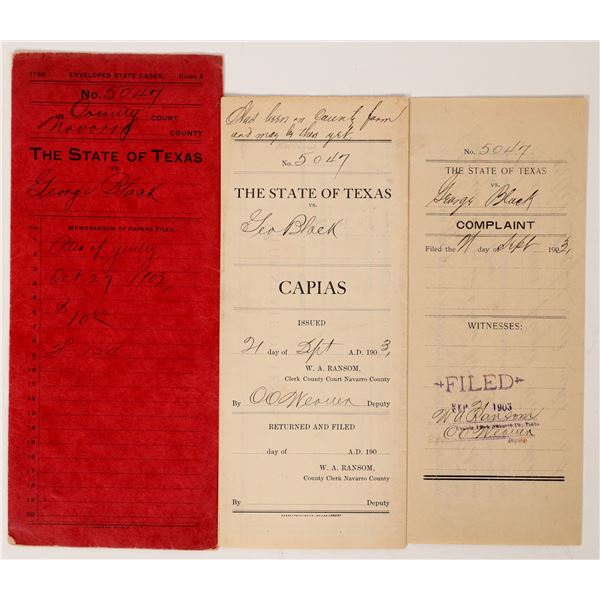 1159 ENVELOPES STATE CASES. CLASS 2
No. 5047
In County COURT
Navarro COUNTY
THE STATE OF TEXAS
VS.
George Black
MEMORANDUM OF PAPERS FILED.
No.
1
2 Plea of guilty
3
4 Oct 27 1903,
5
6 $
7 10.00
8
9
10
11
12
13
14
15
16
17
18
19
20
Has been on County farm
and may be there yet.
No. 5047
THE STATE OF TEXAS
VS.
Geo Black
CAPIAS
ISSUED
21 day of Sept A.D. 1903,
W. A. RANSOM,
Clerk County Court Navarro County
By OO Weaver Deputy
RETURNED AND FILED
day of A.D. 190
W. A. RANSOM,
County Clerk Navarro County
By Deputy
No. 5047
THE STATE OF TEXAS
VS.
George Black
COMPLAINT
Filed the 21 day of Sept 1903,
WITNESSES:
FILED
SEP 21 1903
W A Ransom
County Clerk Navarro Co., Texas
OO Weaver
Deputy